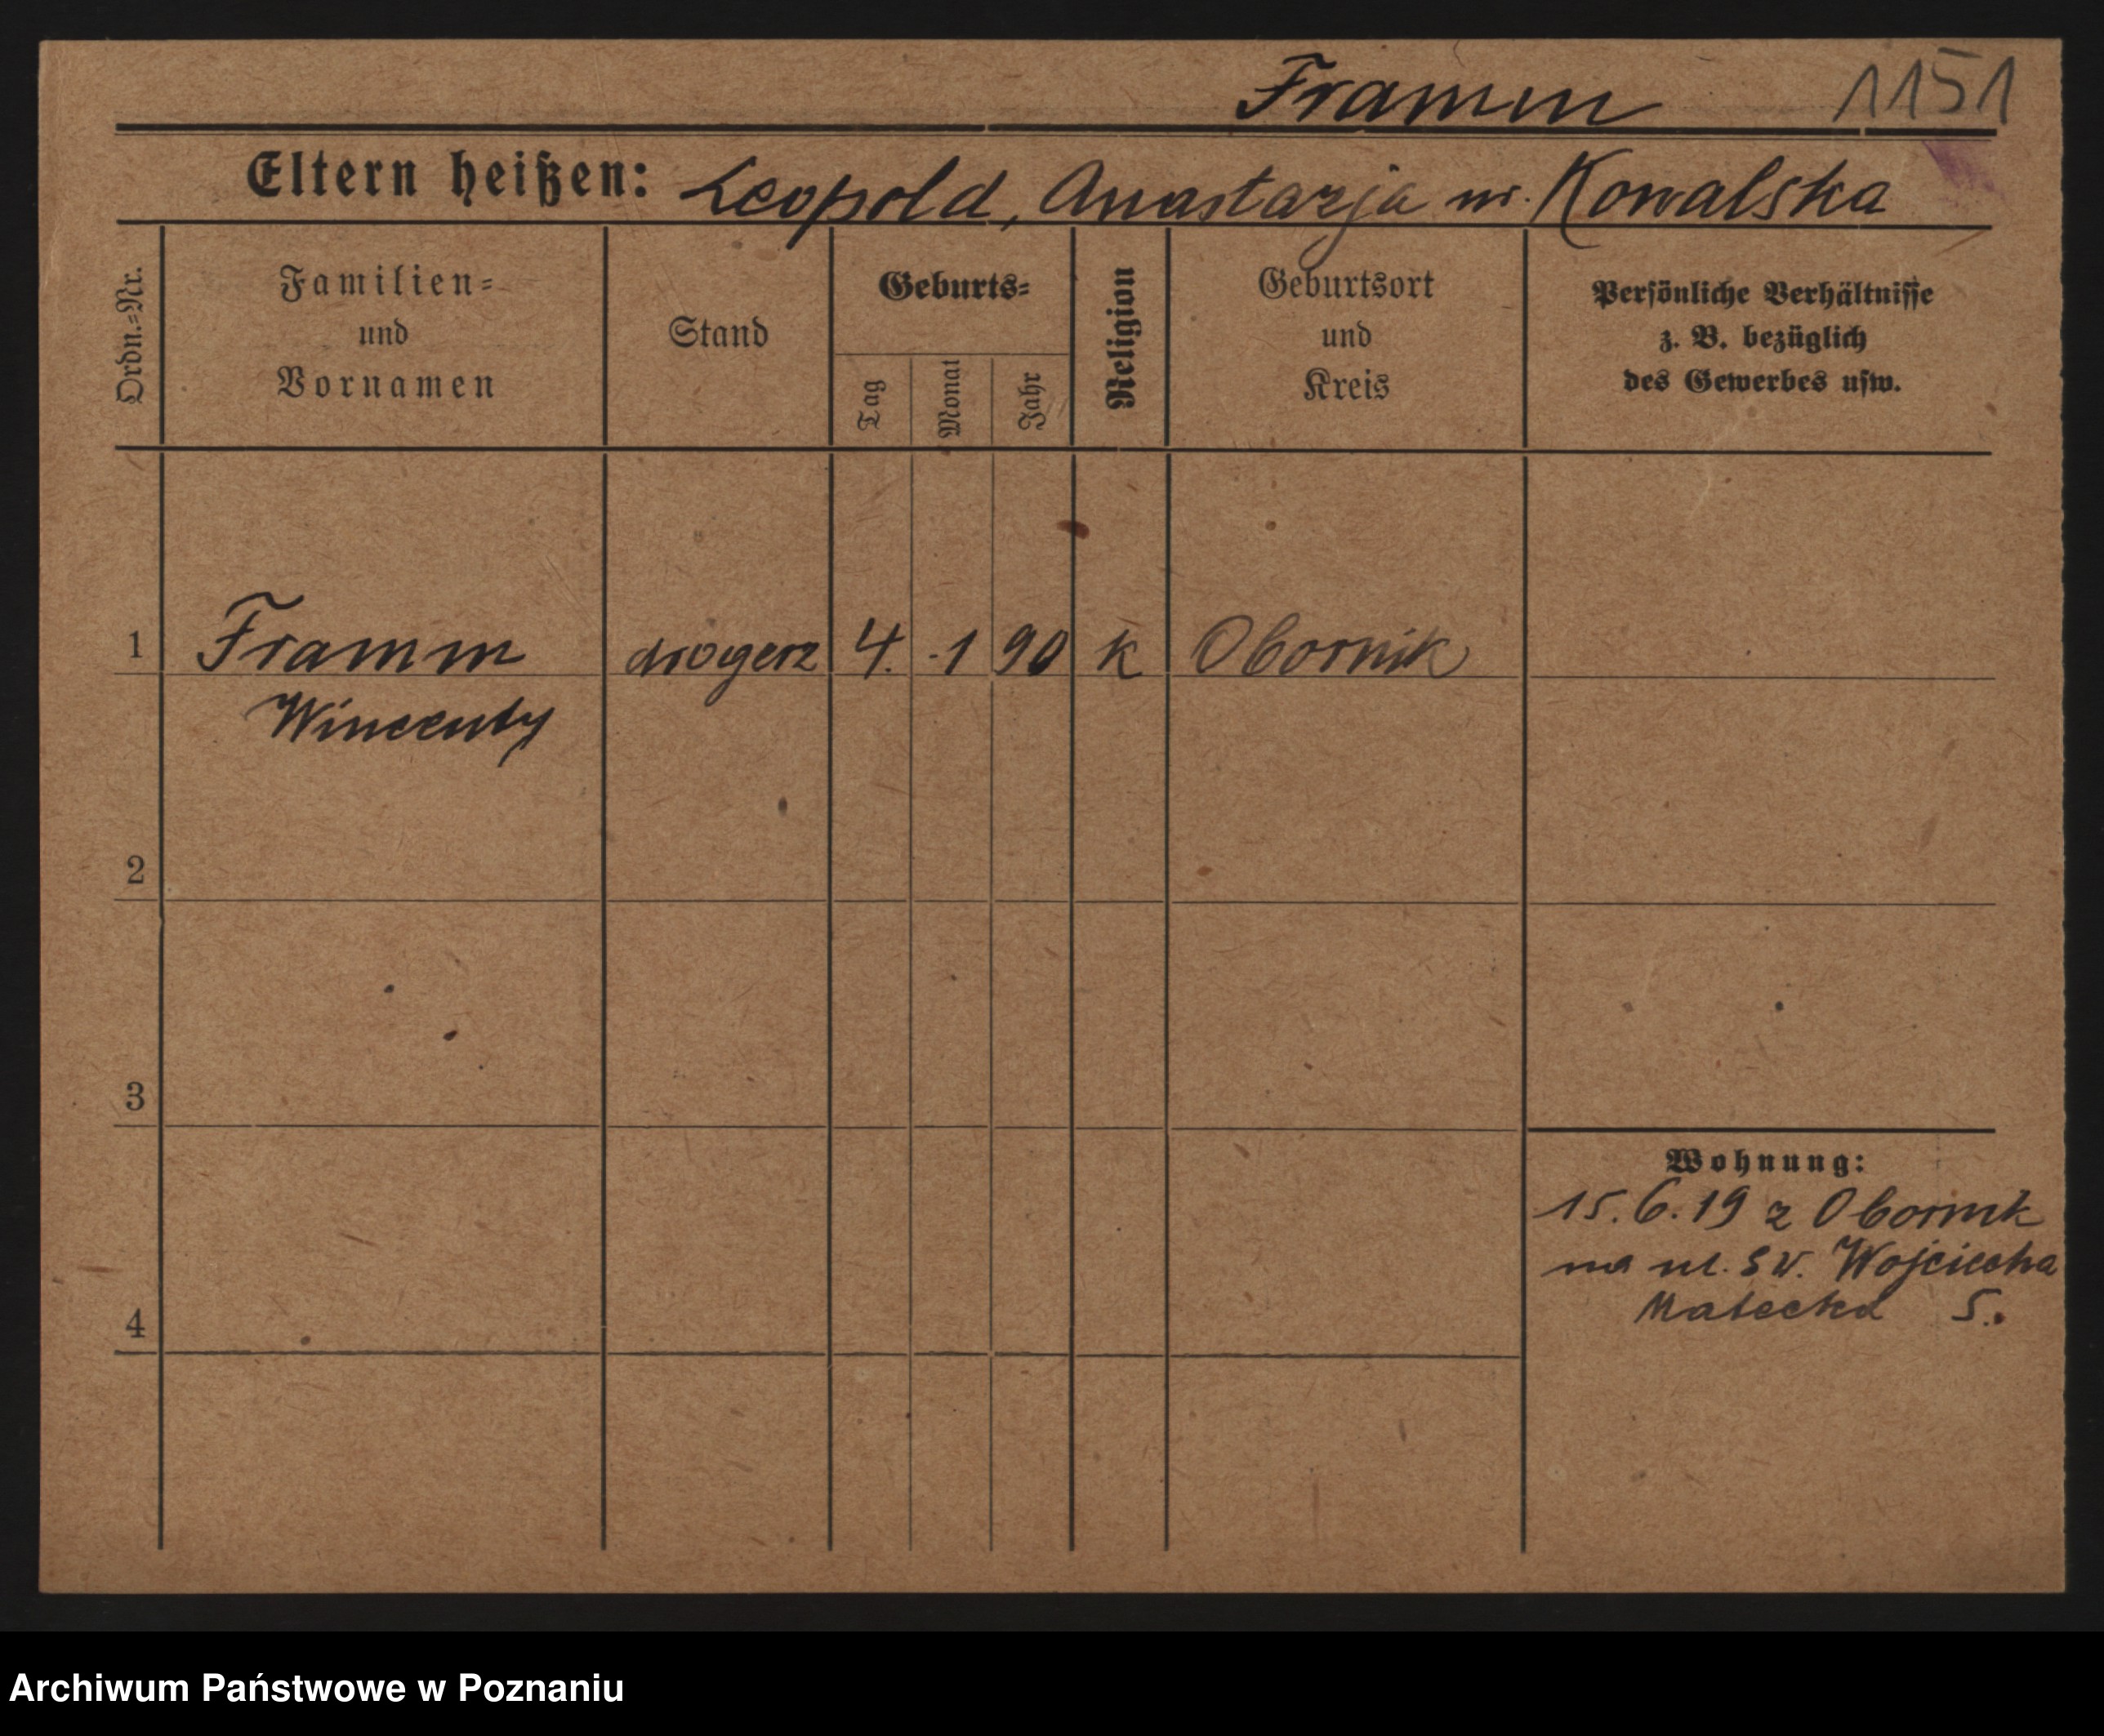 Framm 1151
Eltern heißen: Leopold, Anastazja ur. Kowalska
Ordn.=Nr.
Familien=
und
Vornamen
Stand
Geburts=
Tag
Monat
Jahr
Religion
Geburtsort
und
Kreis
Persönliche Verhältnisse
z. B. bezüglich
des Gewerbes usw.
1 Framm drogerz 4. 1 90 k Obornik
Wincenty
2
3
4
Wohnung:
15.6.19 z Obornik
na ul. Sw. Wojciecha
5.
Archiwum Państwowe w Poznaniu